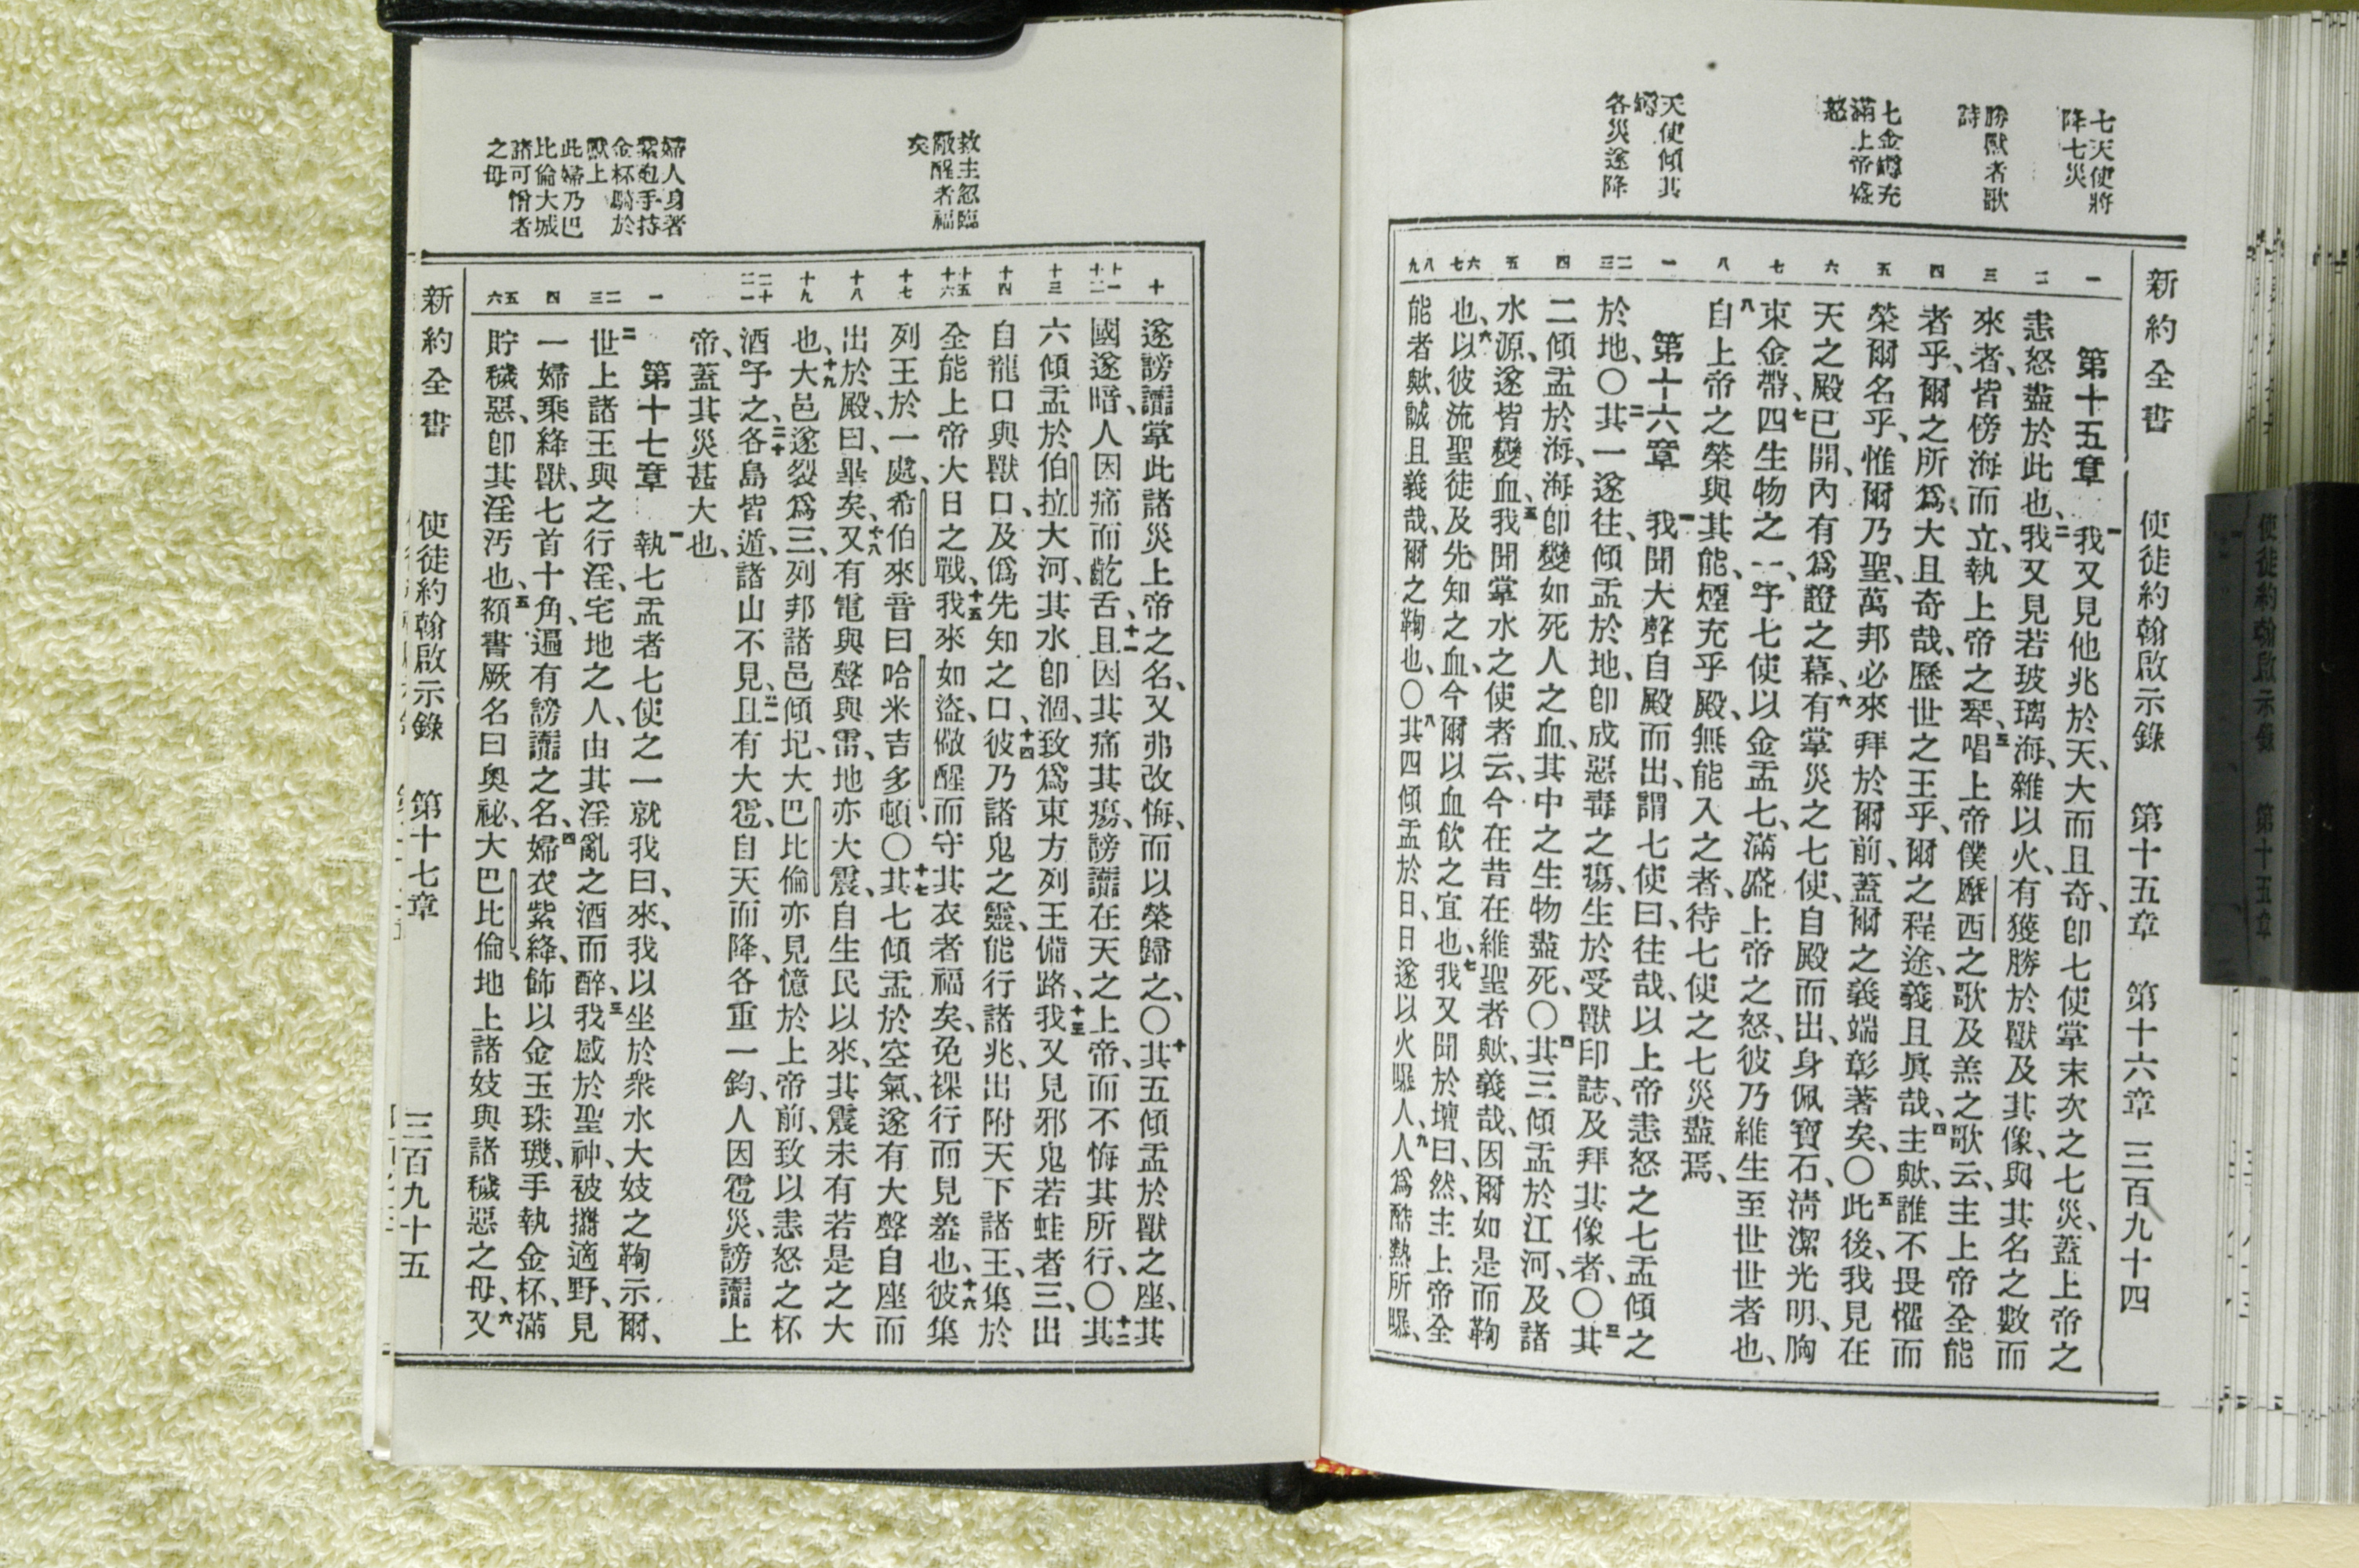 七天使將
降七災
勝獸者歌
詩
七金罇充
滿上帝盛
怒
天使傾其
罇
各災遂降
新約全書 使徒約翰啟示錄 第十五章 第十六章 三百九十四
一
二
三
四
五
六
七
八
一
二三
四
五
六七
八九
第十五章 一我又見他兆於天、大而且奇、卽七使掌末次之七災、蓋上帝之
恚怒盡於此也、二我又見若玻璃海、雜以火、有獲勝於獸及其像、與其名之數而
來者、皆傍海而立、執上帝之琴、三唱上帝僕摩西之歌及羔之歌云、主上帝全能
者乎、爾之所爲、大且奇哉、歷世之王乎、爾之程途、義且眞哉、四主歟、誰不畏懼而
榮爾名乎、惟爾乃聖、萬邦必來拜於爾前、蓋爾之義端彰著矣、〇五此後、我見在
天之殿已開、內有爲證之幕、六有掌災之七使、自殿而出、身佩寶石、淸潔光明、胸
束金帶、七四生物之一、予七使以金盂七、滿盛上帝之怒、彼乃維生至世世者也、
八自上帝之榮與其能、煙充乎殿、無能入之者、待七使之七災盡焉、
第十六章 一我聞大聲自殿而出、謂七使曰、往哉、以上帝恚怒之七盂傾之
於地、〇二其一遂往、傾盂於地、卽成惡毒之瘍、生於受獸印誌、及拜其像者、〇三其
二傾盂於海、海卽變如死人之血、其中之生物盡死、〇四其三傾盂於江河、及諸
水源、遂皆變血、五我聞掌水之使者云、今在昔在維聖者歟、義哉、因爾如是而鞫
也、六以彼流聖徒及先知之血、今爾以血飲之宜也、七我又聞於壇曰、然、主上帝全
能者歟、誠且義哉、爾之鞫也、〇八其四傾盂於日、日遂以火㬥人、九人爲酷熱所㬥、
救主忽臨
儆醒者福
矣
婦人身著
紫袍手持
金杯騎於
獸上
此婦乃巴
比倫大城
諸可憎者
之母
十
十一十二
十三
十四
十五十六
十七
十八
十九
二十二一
一
二三
四
五六
遂謗讟掌此諸災上帝之名、又弗改悔、而以榮歸之、〇十其五傾盂於獸之座、其
國遂暗、人因痛而齕舌、十一且因其痛其瘍、謗讟在天之上帝、而不悔其所行、〇十二其
六傾盂於伯拉大河、其水卽涸、致爲東方列王備路、十三我又見邪鬼若蛙者三、出
自龍口與獸口、及僞先知之口、十四彼乃諸鬼之靈、能行諸兆、出附天下諸王、集於
全能上帝大日之戰、十五我來如盜、儆醒而守其衣者福矣、免裸行而見羞也、十六彼集
列王於一處、希伯來音曰哈米吉多頓、〇十七其七傾盂於空氣、遂有大聲自座而
出於殿、曰、畢矣、十八又有電與聲與雷、地亦大震、自生民以來、其震未有若是之大
也、十九大邑遂裂爲三、列邦諸邑傾圮、大巴比倫亦見憶於上帝前、致以恚怒之杯
酒予之、二十各島皆遁、諸山不見、二一且有大雹、自天而降、各重一鈞、人因雹災、謗讟上
帝、蓋其災甚大也、
第十七章 一執七盂者七使之一就我曰、來、我以坐於衆水大妓之鞫示爾、
二世上諸王與之行淫、宅地之人、由其淫亂之酒而醉、三我感於聖神、被攜適野、見
一婦乘絳獸、七首十角、遍有謗讟之名、四婦衣紫絳、飾以金玉珠璣、手執金杯、滿
貯穢惡、卽其淫汚也、五額書厥名曰奧祕、大巴比倫、地上諸妓與諸穢惡之母、六又
新約全書 使徒約翰啟示錄 第十七章 三百九十五